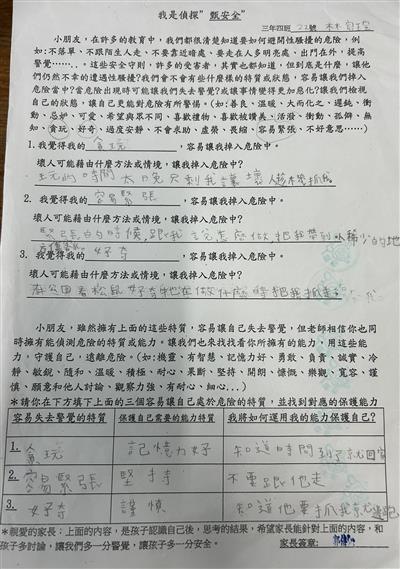 我是偵探"甄安全"
三年四班 22號
小朋友,在許多的教育中,我們都很清楚知道要如何避開性騷擾的危險,例
如:不落單、不跟陌生人走、不要靠近暗處、要走在人多明亮處、出門在外,提高
警覺……..。這些安全守則,許多的受害者,其實也都知道,但到底是什麼,讓他
們仍然不幸的遭遇性騷擾?我們會不會有些什麼樣的特質或狀態,容易讓我們掉入
危險當中?當危險出現時可能讓我們失去警覺?或讓事情變得更加惡化?讓我們檢視
自己的狀態,讓自己更能對危險有所警惕。(如:善良、溫暖、大而化之、遲鈍、衝
動、忌妒、可愛、希望與眾不同、喜歡禮物、喜歡被讚美、活潑、衝動、孤僻、無
知、貪玩、好奇、過度安靜、不會求助、虛榮、長縮、容易緊張、不好意思……)
1.我覺得我的 貪玩 ,容易讓我掉入危險中。
壞人可能藉由什麼方法或情境,讓我掉入危險中?
玩的時間太晚只剩我讓壞人趁不警抓我
2. 我覺得我的 容易緊張 ,容易讓我掉入危險中。
壞人可能藉由什麼方法或情境,讓我掉入危險中?
緊張的時候跟我說怎麼做把我帶到人稀少的地
3. 我覺得我的 好奇 ,容易讓我掉入危險中。
壞人可能藉由什麼方法或情境,讓我掉入危險中?
在公園看松鼠好奇牠在做什麼時把我抓走
小朋友,雖然擁有上面的這些特質,容易讓自己失去警覺,但老師相信你也同
時擁有能偵測危險的特質或能力。讓我們也來找找看你所擁有的能力,用這些能
力,守護自己,遠離危險。(如:機靈、有智慧、記憶力好、勇敢、負責、誠實、冷
靜、敏銳、隨和、溫暖、積極、耐心、果斷、堅持、開朗、慷慨、樂觀、寬容、謹
慎、願意和他人討論、觀察力強、有耐心、細心...)
*請你在下方填下上面的三個容易讓自己處於危險的特質,並找到對應的保護能力
容易失去警覺的特質 保護自己需要的能力特質 我將如何運用我的能力保護自己?
1. 貪玩 記憶力好 知道時間到了就回家
2. 容易緊張 堅持 不要跟他走
3. 好奇 謹慎 知道他要抓我就逃跑
*親愛的家長:上面的內容,是孩子認識自己後,思考的結果,希望家長能針對上面的內容,和
孩子多討論,讓我們多一分警覺,讓孩子多一分安全。 家長簽章: